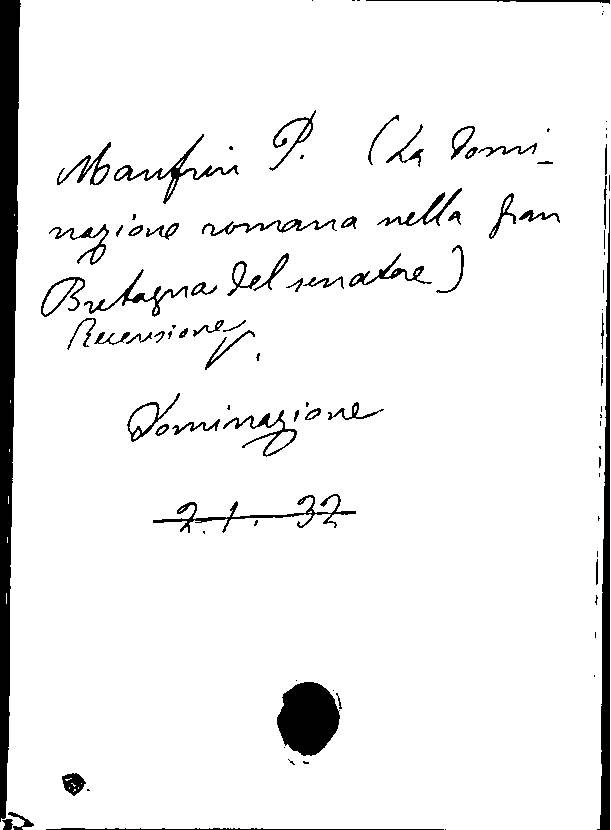 Manfrin P. (La Domi-
nazione romana nella gran
Bretagna del senatore)
Recensione
Dominazione
2.1. 32